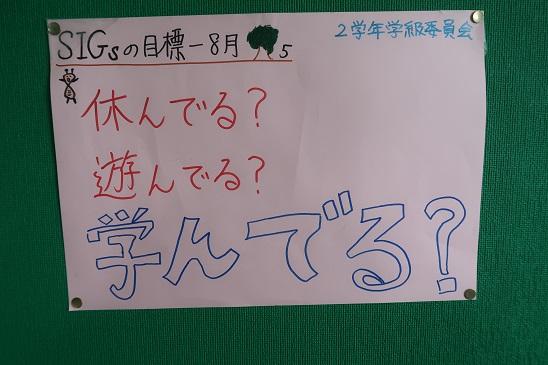 SIGsの目標-8月 5
2学年学級委員会
休んでる?
遊んでる?
学んでる?